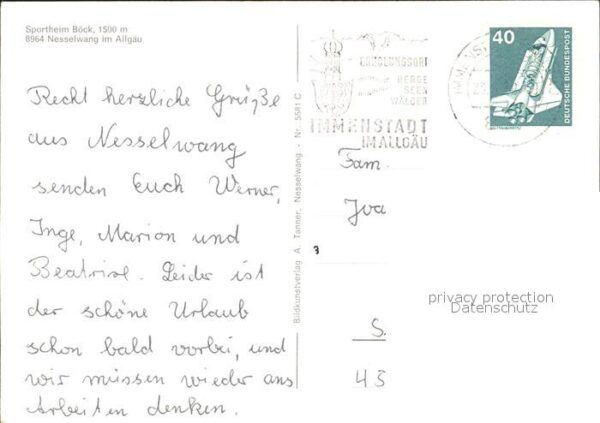 Sportheim Böck, 1500 m
8964 Nesselwang im Allgäu
Recht herzliche Grüße
aus Nesselwang
senden Euch Werner,
Inge, Marion und
Beatrise. Leider ist
der schöne Urlaub
schon bald vorbei, und
wir müssen wieder ans
Arbeiten denken.
Bildkunstverlag A. Tanner, Nesselwang - Nr. 5581 C
ERHOLUNGSORT
BERGE
SEEN
WÄLDER
IMMENSTADT
IM ALLGÄU
40
DEUTSCHE BUNDESPOST
Fam.
Iva
S.
43
privacy protection
Datenschutz